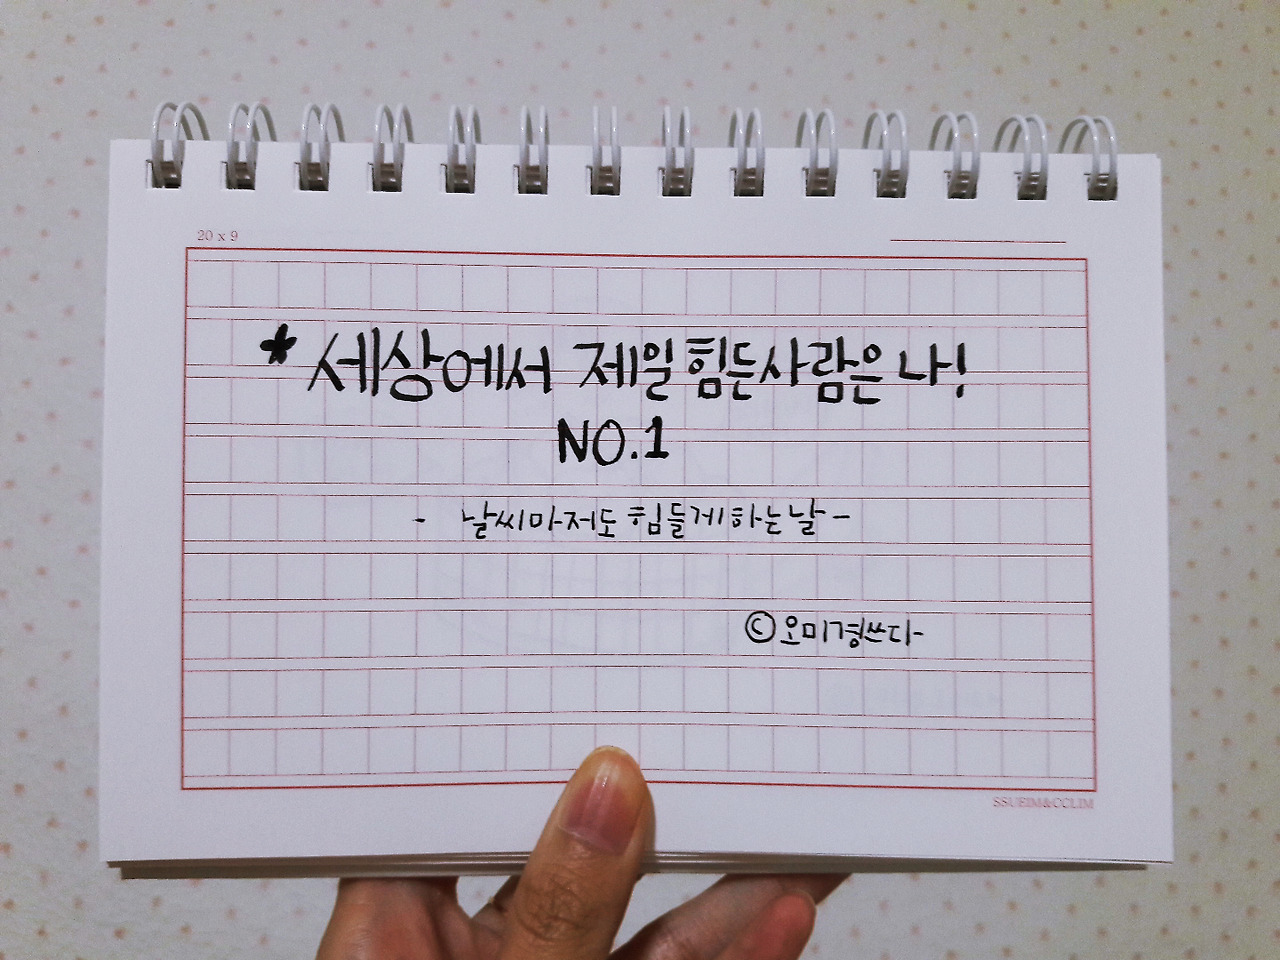 20 x 9
* 세상에서 제일 힘든 사람은 나!
NO.1
- 날씨마저도 힘들게 하는 날 -
ⓒ오미경쓰다
SSUEIM&CCLIM